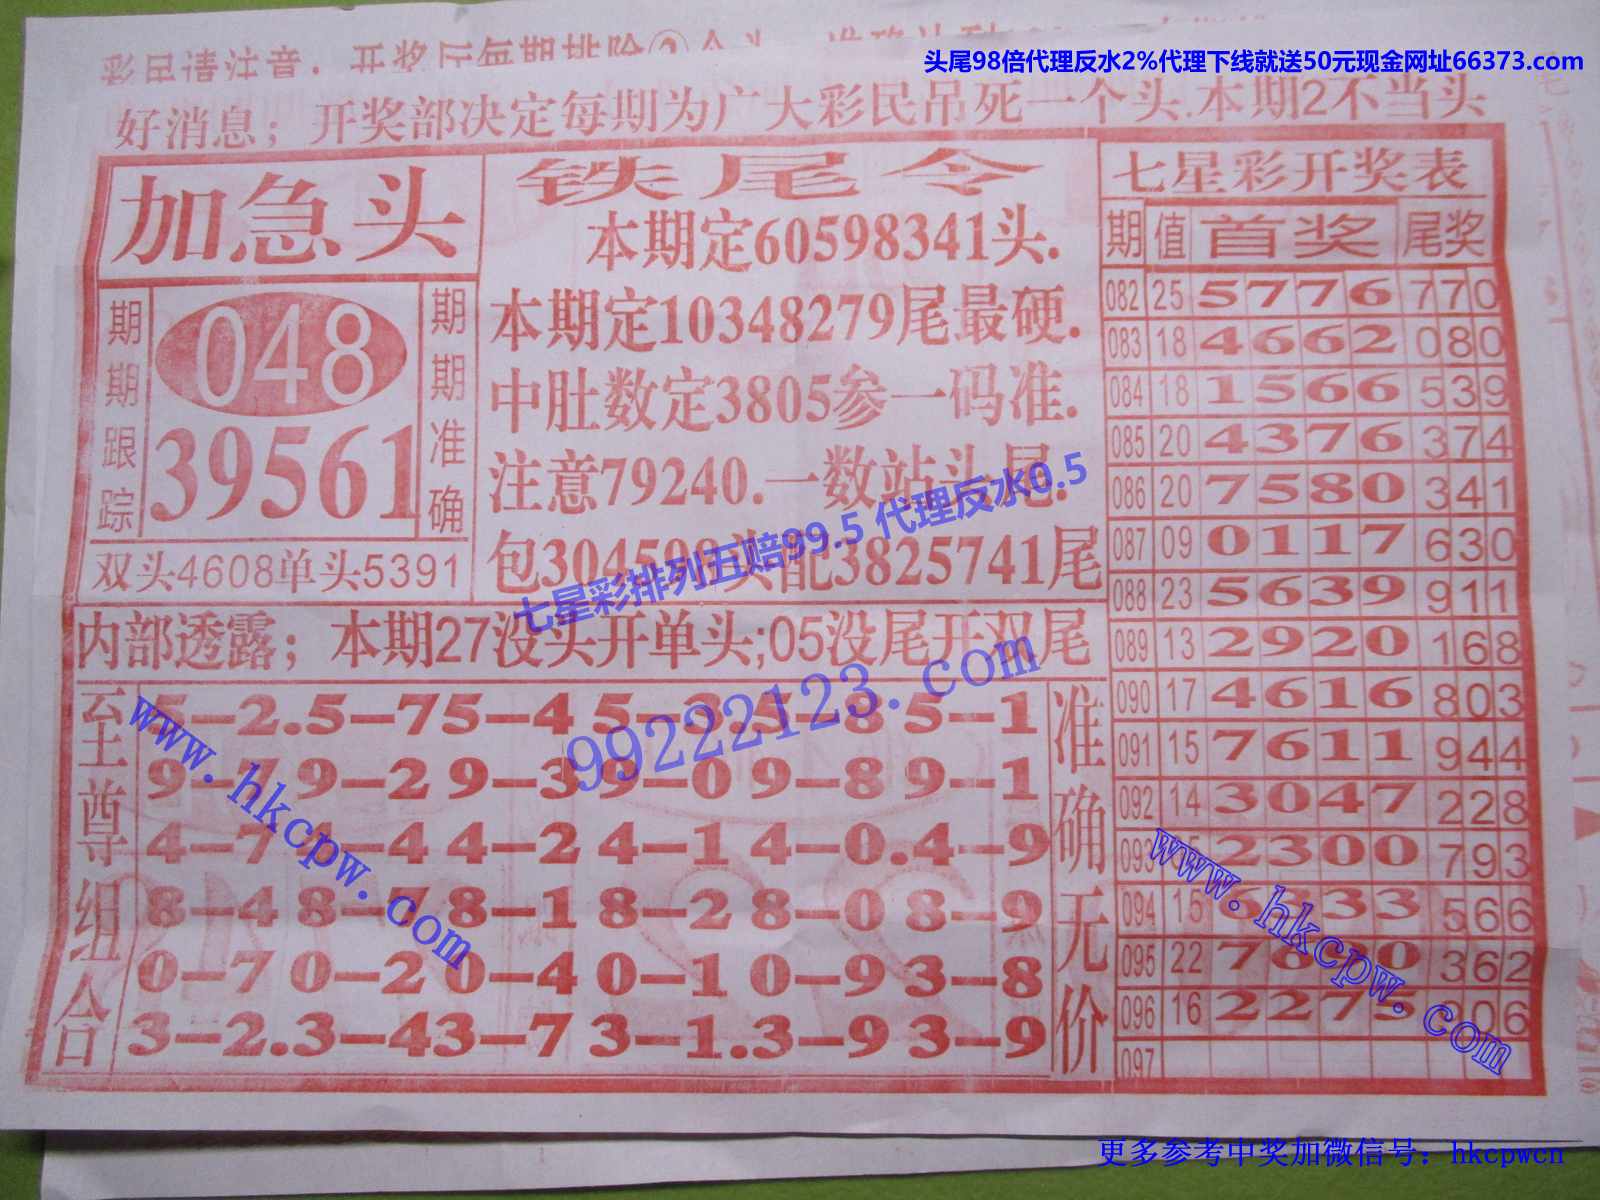 彩民请注音，开奖历每期排除②个头
头尾98倍代理反水2%代理下线就送50元现金网址66373.com
好消息；开奖部决定每期为广大彩民吊死一个头.本期2不当头
加急头
期期跟踪
048
39561
期期准确
双头4608单头5391
铁尾令
本期定60598341头.
本期定10348279尾最硬.
中肚数定3805参一码准.
注意79240.一数站头尾.
3825741尾
七星彩排列五赔99.5 代理反水0.5
内部透露；本期27没头开单头;05没尾开双尾
99222123.com
至尊组合
5-2.5-75-4
5-1
9-7 9-2 9-3 9-0 9-8 9-1
4-4 4-2 4-1 4-0.4-9
8-4 8-7 8-1 8-2 8-0 8-9
0-7 0-2 0-4 0-1 0-9 3-8
3-2.3-43-7 3-1.3-9 3-9
准确无价
www.hkcpw.com
七星彩开奖表
期 值 首奖 尾奖
082 25 5776 770
083 18 4662 080
084 18 1566 539
085 20 4376 374
086 20 7580 341
087 09 0117 630
088 23 5639 911
089 13 2920 168
090 17 4616 803
091 15 7611 944
092 14 3047 228
093 2300 793
094 15 6 33 566
095 22 7 0 362
096 16 2275 06
097
www.hkcpw.com
更多参考中奖加微信号：hkcpwcn